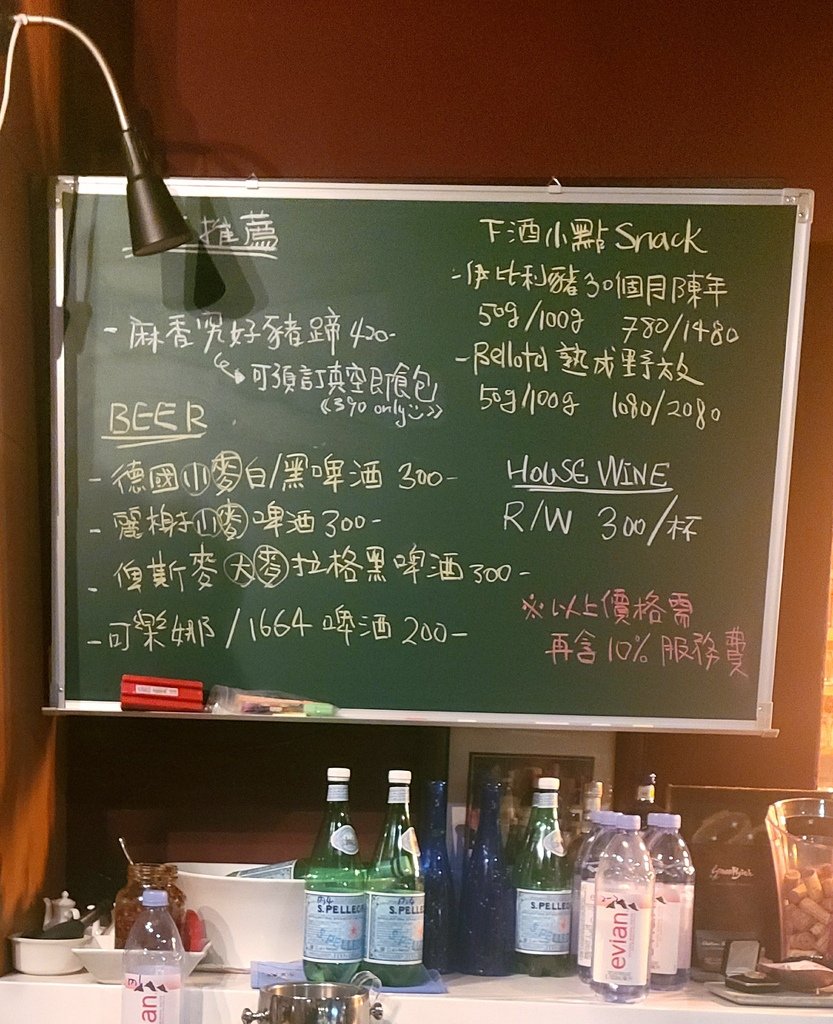 推薦
- 麻香究好豬蹄 420-
可預訂真空即食包
<<390 only>>
BEER
- 德國小麥白/黑啤酒 300-
- 麗榭小麥啤酒 300-
- 俄斯麥大麥拉格黑啤酒 300-
- 可樂娜/1664 啤酒 200-
下酒小點 Snack
- 伊比利豬30個月陳年
50g/100g 780/1480
- Bellota 熟成野放
50g/100g 1080/2080
HOUSE WINE
R/W 300/杯
※以上價格需
再含10%服務費
S.PELLE
S.PELLE
S.PELLE
evian